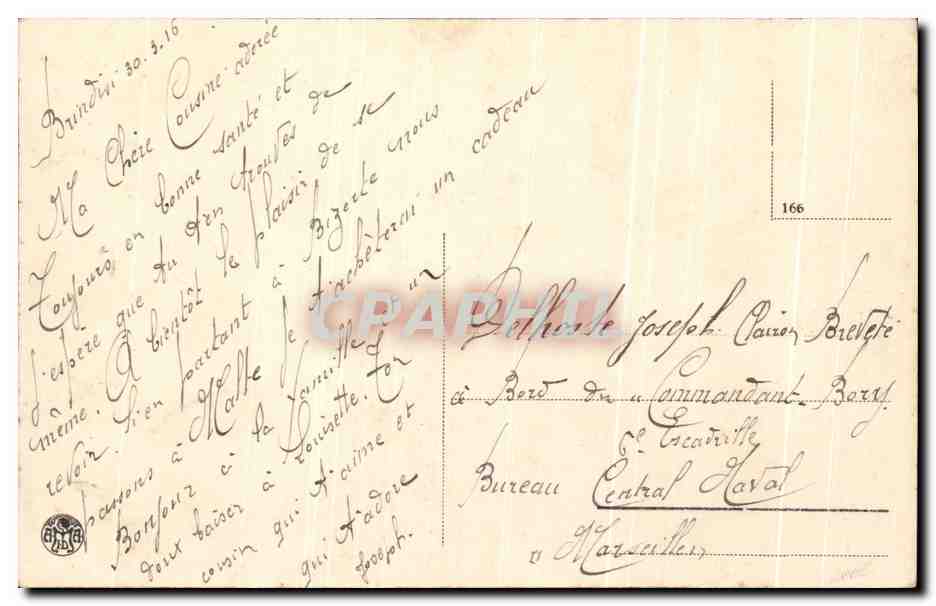 Brindisi 30.3.16
Ma Chère Cousine adorée
Toujours en bonne santé et
j'espère que tu Arn trouves de
meme. A bientôt le plaisir de se
revoir. bien partant à Bizerte nous
passons à Malte je t'achèterai un cadeau
Bonjour à la famille et un
doux baiser à Louisette. Ton
cousin qui t'aime et
qui t'adore
Joseph.
166
Delhoste Joseph. Clairon Breveté
à Bord du "Commandant-Bory"
6e Escadrille
Bureau Central Naval
Marseille
CPAPHIL